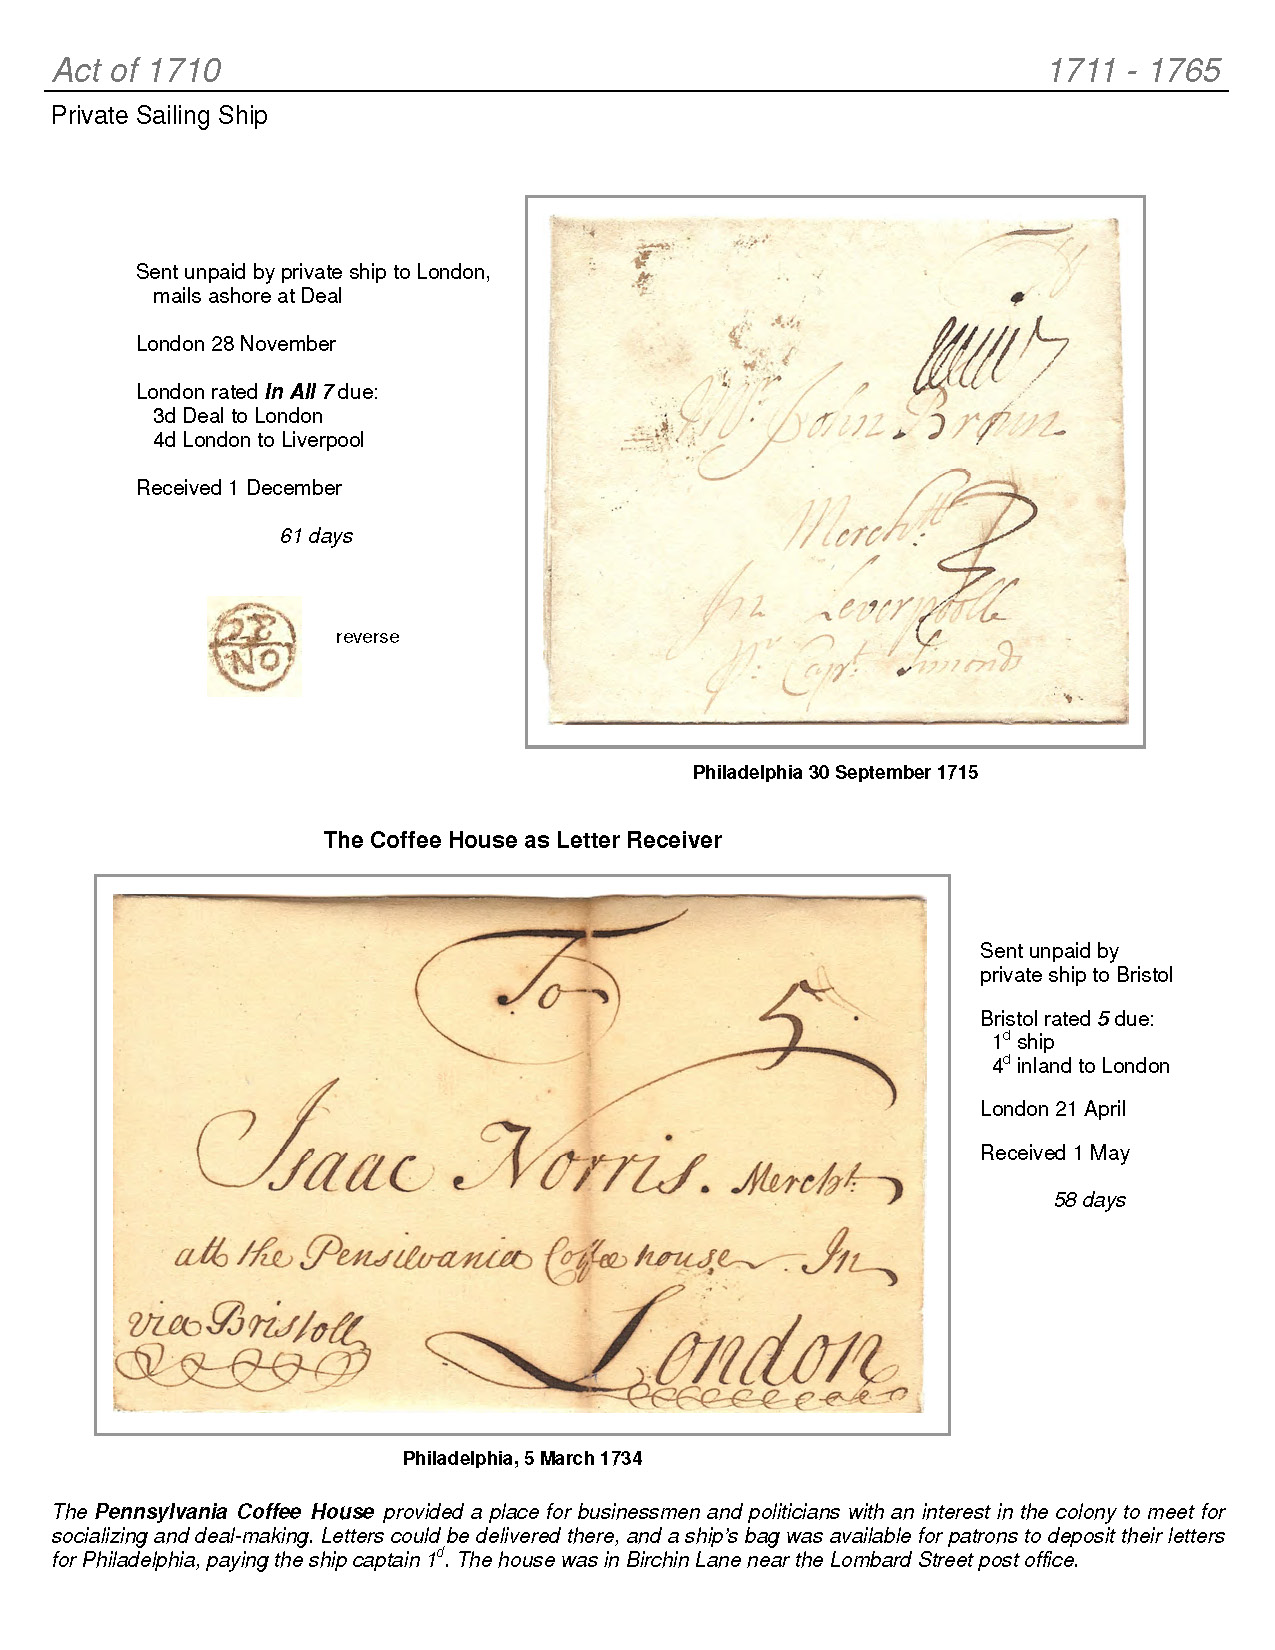 Act of 1710 1711 - 1765
Private Sailing Ship
Sent unpaid by private ship to London,
mails ashore at Deal
London 28 November
London rated In All 7 due:
3d Deal to London
4d London to Liverpool
Received 1 December
61 days
reverse
NO
Mr John Brown
Merchtt
In Leverpoolle
pr Capt. Simonds
Philadelphia 30 September 1715
The Coffee House as Letter Receiver
To
5
Isaac Norris. Mercht.
att the Pensilvania Coffee house. In
via Bristoll
London
Philadelphia, 5 March 1734
Sent unpaid by
private ship to Bristol
Bristol rated 5 due:
1d ship
4d inland to London
London 21 April
Received 1 May
58 days
The Pennsylvania Coffee House provided a place for businessmen and politicians with an interest in the colony to meet for
socializing and deal-making. Letters could be delivered there, and a ship's bag was available for patrons to deposit their letters
for Philadelphia, paying the ship captain 1d. The house was in Birchin Lane near the Lombard Street post office.